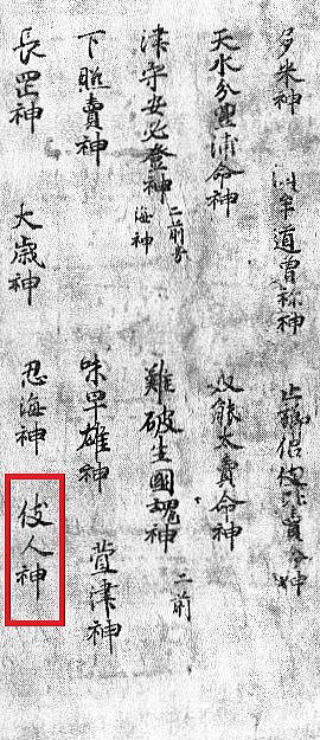 多米神 牟道曾祢神 止 侶 賣命神
天水分豊浦命神 奴能太賣命神
津守安必登神 二前号
海神
難破生國魂神 二前
下照賣神 味早雄神 萱津神
長罡神 大歳神 忍海神 伎人神